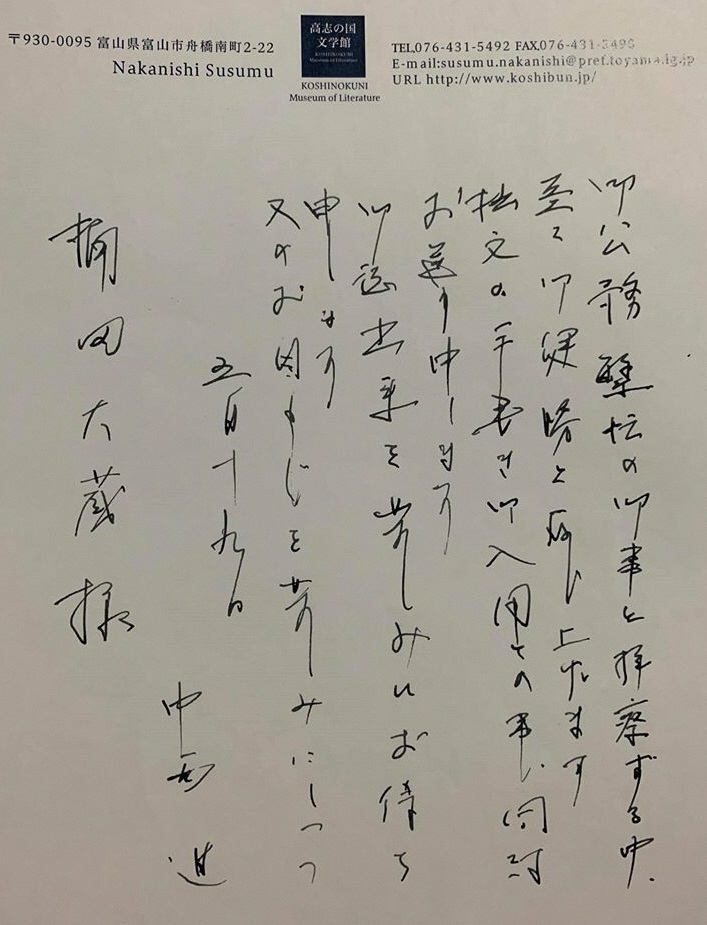 〒930-0095 富山県富山市舟橋南町2-22
Nakanishi Susumu
高志の国
文学館
KOSHINOKUNI
Museum of Literature
KOSHINOKUNI
Museum of Literature
TEL.076-431-5492 FAX.076-431-5490
E-mail:susumu.nakanishi@pref.toyama.lg.jp
URL http://www.koshibun.jp/
御公務繁忙の御事と拝察する中、
益々御健勝と存じ上げます
拙文の手書き御入用との事、同封
お送り申します
御誌出来を楽しみにお待ち
申します
又のお目もじを楽しみにしつつ
五月十九日
中西 進
田大蔵様